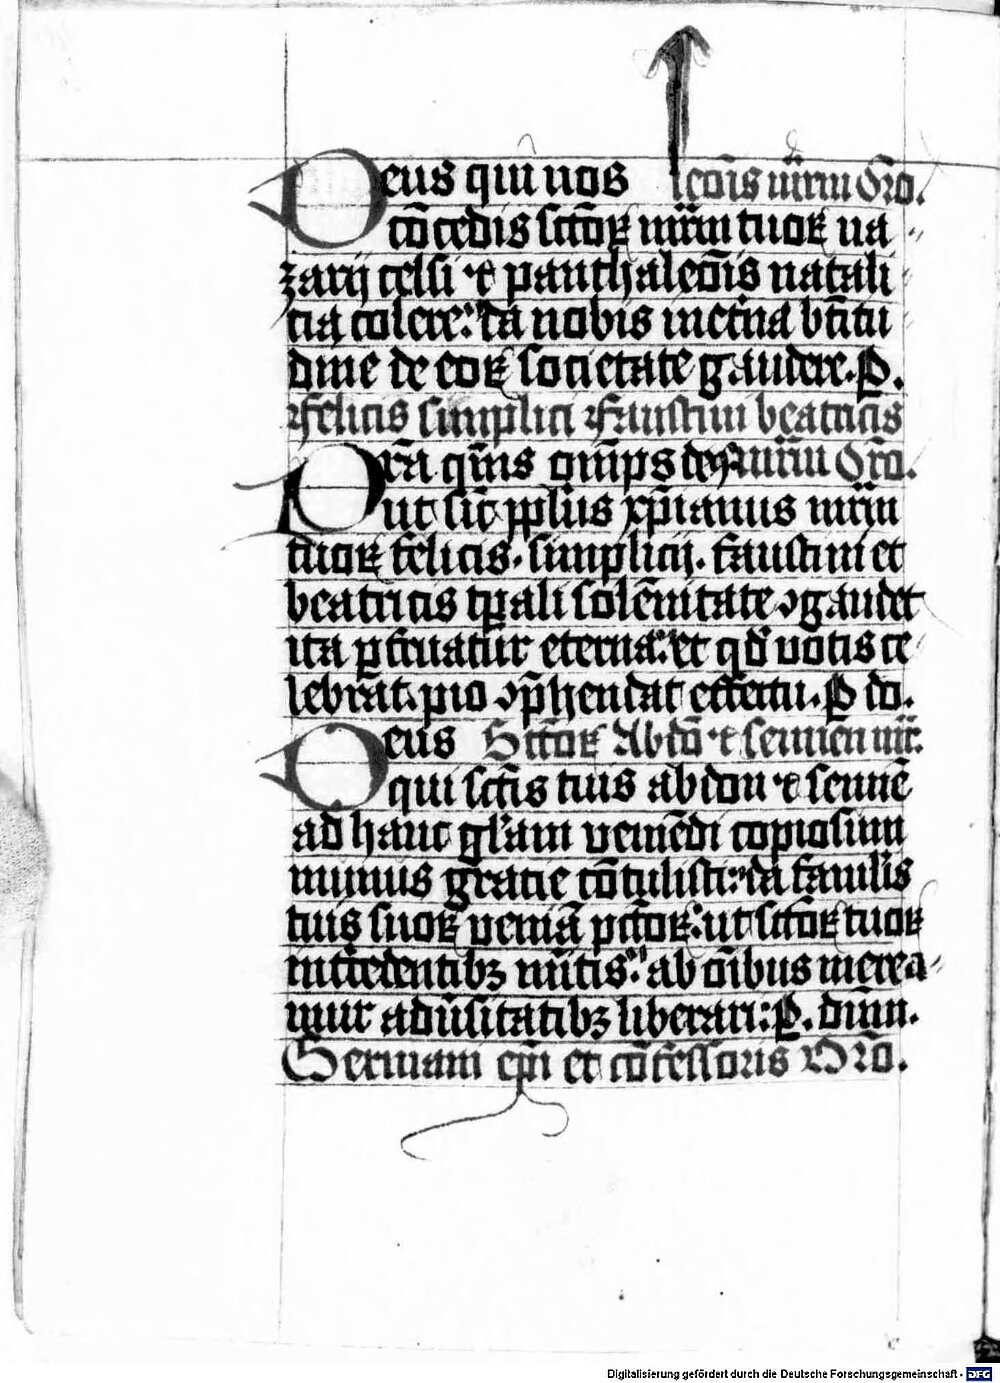 Deus qui nos leōis mr̄m Oro.
cōcedis sctōꝝ mr̄m tuoꝝ na
zarij celsi ⁊ panthaleōis natali
cia colere: da nobis in et̄na bt̄itu
dine de eoꝝ societate gaudere. P.
Felicis simplici Faustini beatricis
Pr̄a qm̄s om̄ps deꝰ mr̄m Orō.
ut sic̄ ppl̄us xp̄ianus mr̄m
tuoꝝ felicis. simplicij. faustini et
beatricis tp̄ali solēnitate ꝯgaudet
ita ꝑfruatur eterna: et qd̄ uotis ce
lebrat. pio ꝯp̄hendat effectu. P do.
Deus Sctōꝝ Abdō ⁊ sennen mr̄.
qui sct̄is tuis abdon ⁊ sennē
ad hanc gl̄am veniēdi copiosum
munus gratie cōtulisti: da famul̄is
tuis suoꝝ veniā pctōꝝ: ut sctōꝝ tuoꝝ
int̄cedentibꝫ mr̄itis: ab om̄ibus merea
mur adūsitatibꝫ liberari: P. dūm.
Germani ep̄i et cōfessoris Orō.
Digitalisierung gefördert durch die Deutsche Forschungsgemeinschaft - DFG